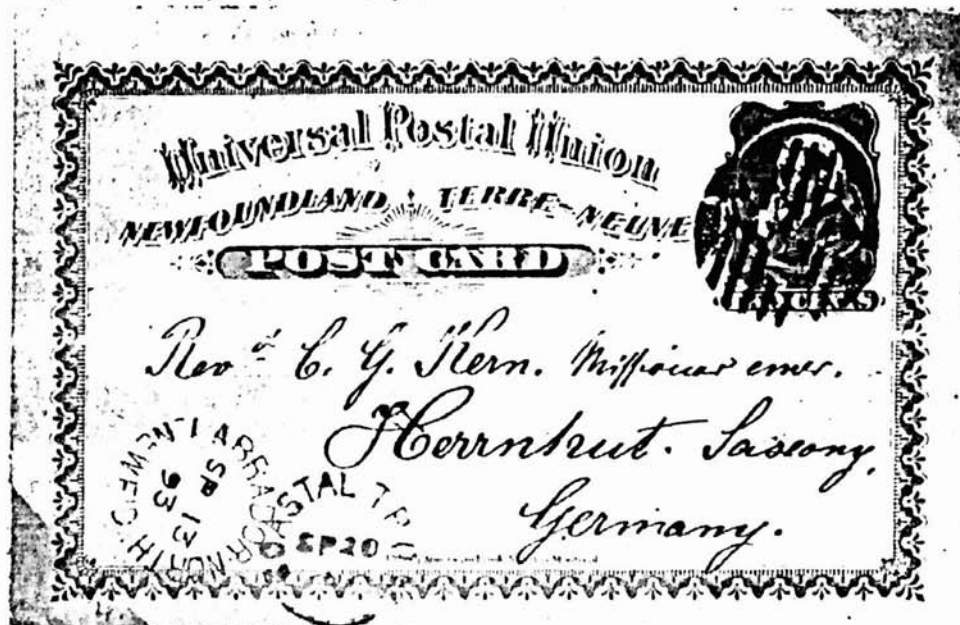 Universal Postal Union
NEWFOUNDLAND TERRE-NEUVE
POST CARD
Revd C. G. Kern. Missionar emer.
Herrnhut. Saxony,
Germany.
LABRADOR NORTH
SP 13 93
COASTAL T.P.O
SP 20